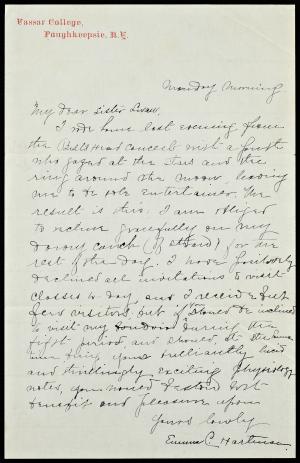 Vassar College,
Poughkeepsie, N.Y.
Monday Morning
My dear Sister
I rode home last evening from
the concert with a youth
who gazed at the stars and the
ring around the moon, leaving
me to be sole entertainer. The
result is this. I am obliged
to recline gracefully on my
downy couch for the
rest of the day. I have
declined all invitations to visit
classes to-day, and I receive but
few visitors, but if should be inclined
to visit my during the
fifth period, and should, at the same
time bring your brilliantly lucid
and thrillingly exciting Physiology
notes, you would bestow both
benefit and pleasure upon
Yours
Emma C. Hartman